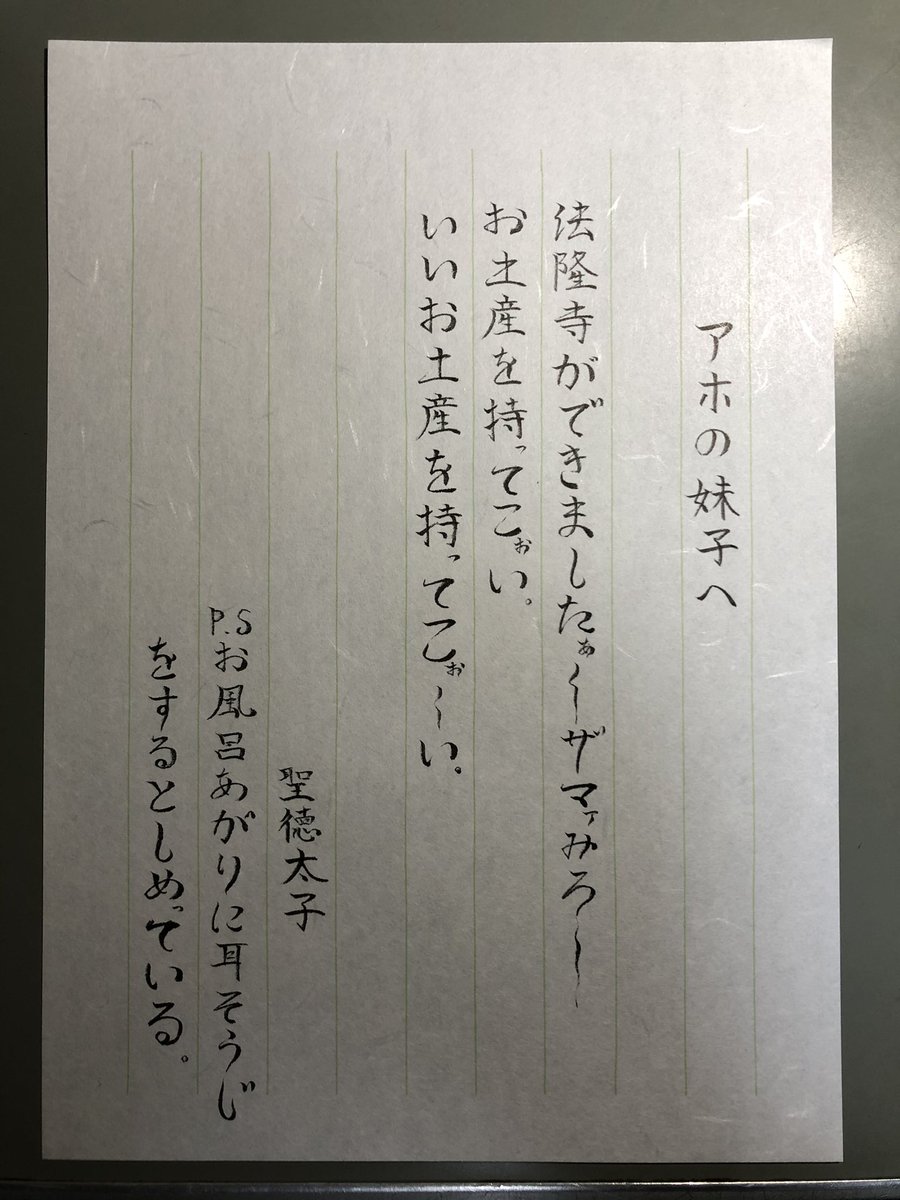 アホの妹子へ
法隆寺ができましたぁ〜ザマァみろ〜
お土産を持ってこぉい。
いいお土産を持ってこぉ〜い。
聖徳太子
P.Sお風呂あがりに耳そうじ
をするとしめっている。